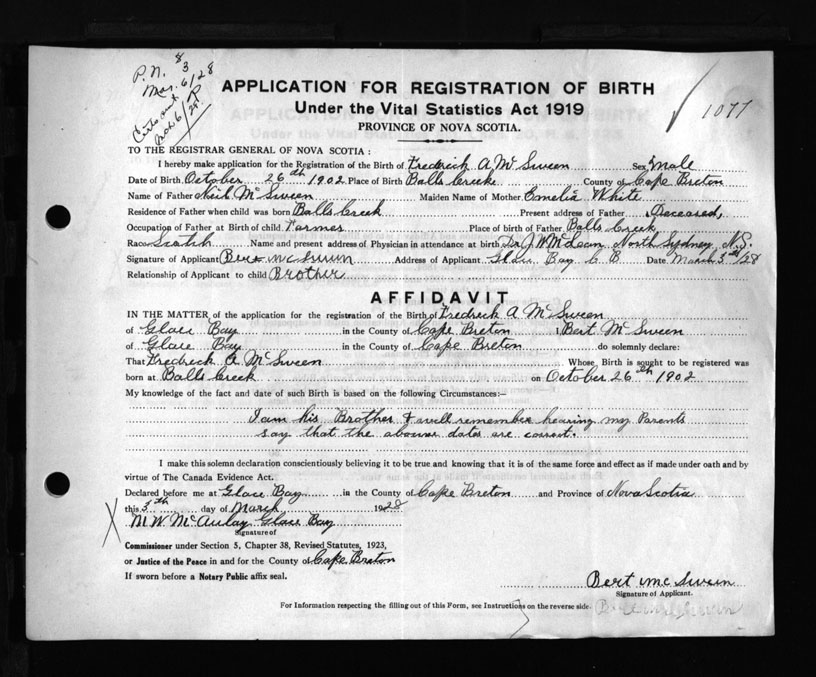 P.N. 83
Mar. 6/28
1077
APPLICATION FOR REGISTRATION OF BIRTH
Under the Vital Statistics Act 1919
PROVINCE OF NOVA SCOTIA.
TO THE REGISTRAR GENERAL OF NOVA SCOTIA :
I hereby make application for the Registration of the Birth of Fredrick A McSween Sex Male
Date of Birth October 26th 1902 Place of Birth Balls Creek County of Cape Breton
Name of Father Neil McSween Maiden Name of Mother Emelia White
Residence of Father when child was born Balls Creek Present address of Father Deceased,
Occupation of Father at Birth of child Farmer Place of birth of Father Balls Creek
Race Scotish Name and present address of Physician in attendance at birth Dr J W McLean North Sydney N.S.
Signature of Applicant Bert McSween Address of Applicant Glace Bay C B Date March 5th/28
Relationship of Applicant to child Brother
AFFIDAVIT
IN THE MATTER of the application for the registration of the Birth of Fredrick A McSween
of Glace Bay in the County of Cape Breton I Bert McSween
of Glace Bay in the County of Cape Breton do solemnly declare:
That Fredrick A McSween Whose Birth is sought to be registered was
born at Balls Creek on October 26th 1902
My knowledge of the fact and date of such Birth is based on the following Circumstances:—
I am his Brother & well remember hearing my Parents
say that the above dates are correct.
I make this solemn declaration conscientiously believing it to be true and knowing that it is of the same force and effect as if made under oath and by
virtue of The Canada Evidence Act.
Declared before me at Glace Bay in the County of Cape Breton and Province of Nova Scotia
this 5th day of March 1928
M.W. McAulay Glace Bay
Signature of
Commissioner under Section 5, Chapter 38, Revised Statutes, 1923,
or Justice of the Peace in and for the County of Cape Breton
If sworn before a Notary Public affix seal.
Bert McSween
Signature of Applicant.
For Information respecting the filling out of this Form, see Instructions on the reverse side.